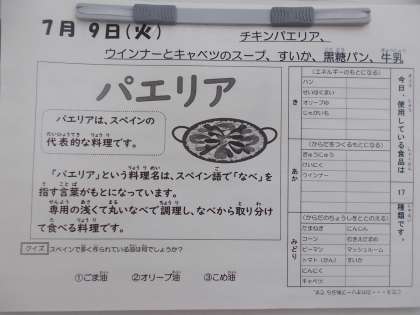 7月9日(火)
チキンパエリア、
ウインナーとキャベツのスープ、すいか、黒糖パン、牛乳
パエリア
パエリアは、スペインの
代表的な料理です。
「パエリア」という料理名は、スペイン語で「なべ」を
指す言葉がもとになっています。
専用の浅くて丸いなべで調理し、なべから取り分け
て食べる料理です。
クイズ スペインで多く作られている油は何でしょうか?
①ごま油 ②オリーブ油 ③こめ油
今日、使用している食品は 17 種類です。
き
(エネルギーのもとになる)
パン
せいはくまい
オリーブゆ
じゃがいも
あか
(からだをつくるもとになる)
ぎゅうにゅう
けいにく
ウインナー
みどり
(からだのちょうしをととのえる)
たまねぎ にんじん
コーン
ピーマン マッシュルーム
トマト(かん) すいか
にんにく
キャベツ